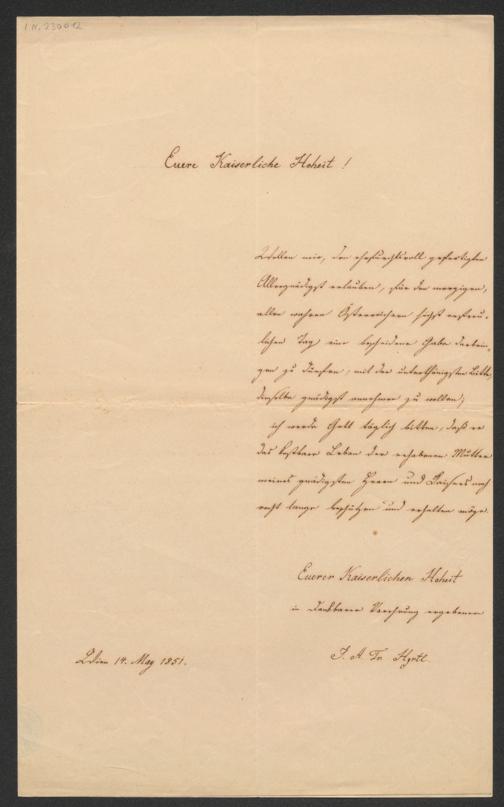 I.N. 230012
Euere Kaiserliche Hoheit!
Wollen mir, den ehrfurchtsvoll gefertigten
Allergnädigst erlauben, für den morgigen,
allen wahren Österreichern höchst erfreu-
lichen Tag eine bescheidene Gabe darbrin-
gen zu dürfen, mit der unterthänigsten Bitte,
dieselbe gnädigst annehmen zu wollen;
ich werde Gott täglich bitten, daß er
das kostbare Leben der erhabenen Mutter
meines gnädigsten Herrn und Kaisers noch
recht lange beschützen und erhalten möge.
Euerer Kaiserlichen Hoheit
in dankbarer Verehrung ergebener
Wien 14. May 1851.
J. A. Fr. Hyrtl